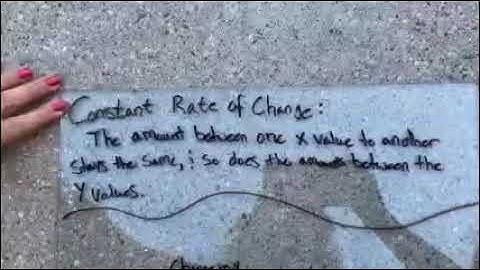 Constant Rate of Change:
The amount between one x value to another
stays the same, & so does the amount between the
Y values.